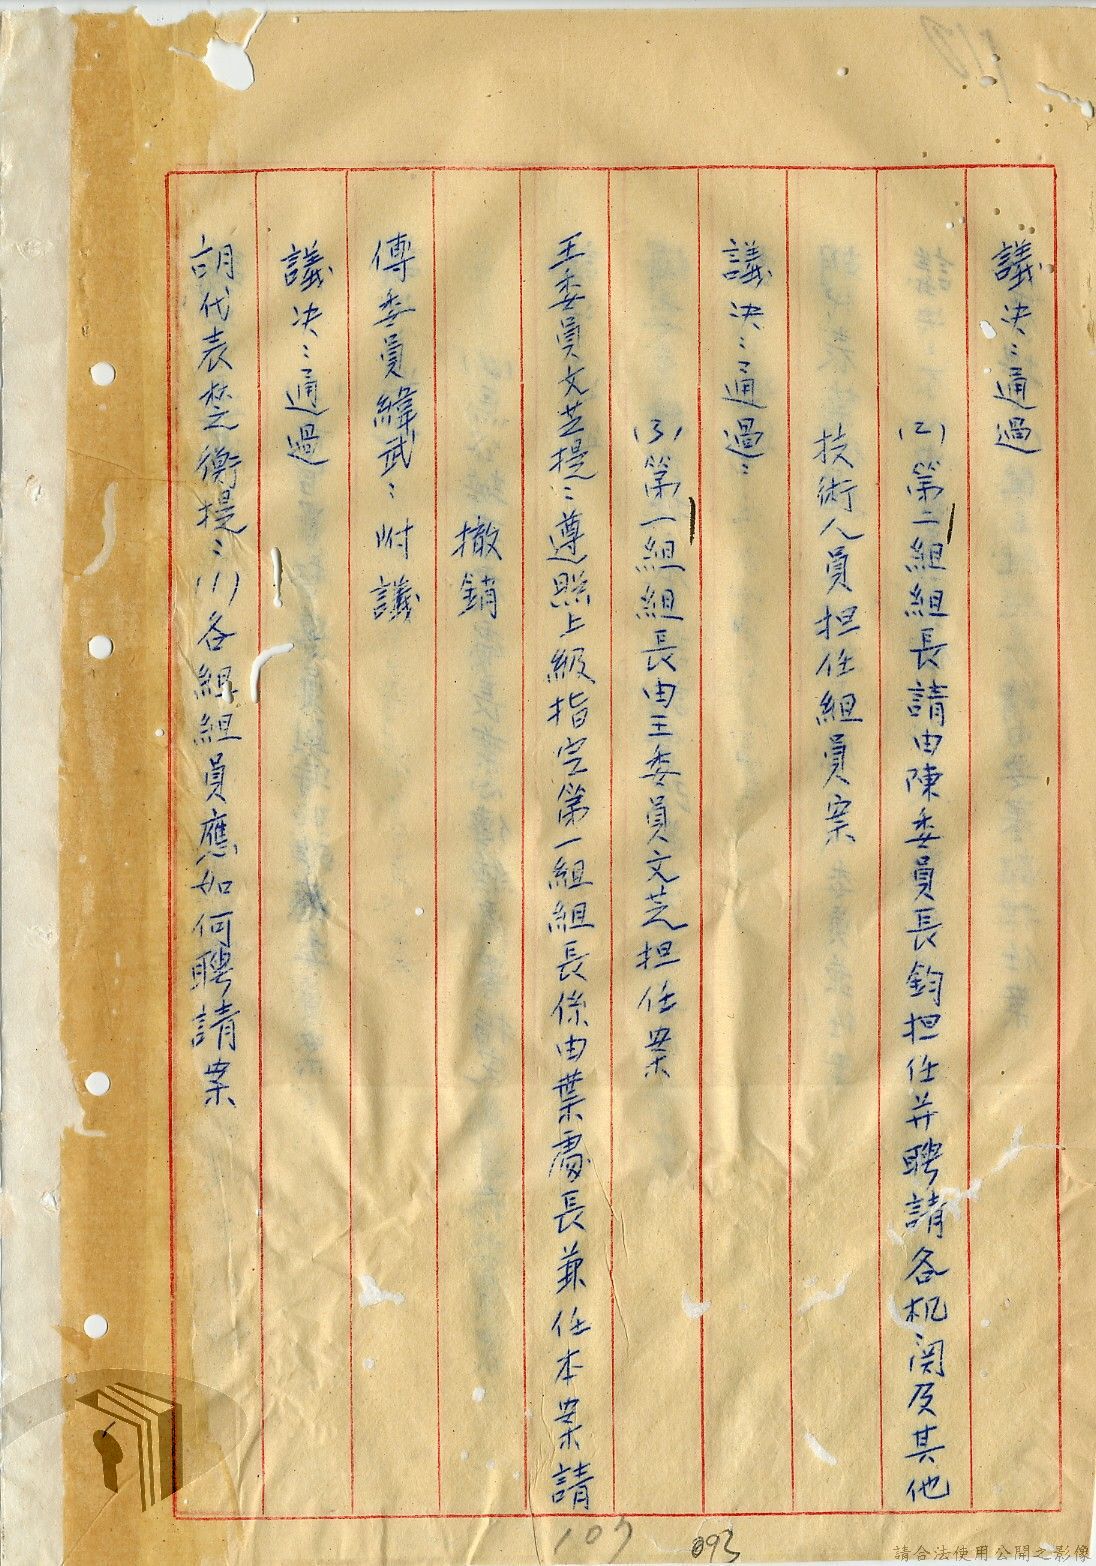 議決：通過
(2)第二組組長請由陳委員長鈞担任并聘請各机関及其他
技術人員担任組員案
議決：通過：
(3)第一組組長由王委員文芝担任案
王委員文芝提：遵照上級指定第一組組長係由葉處長兼任本案請
撤銷
傅委員緯武：附議
議决：通過
胡代表楚衡提：(1)各組組員應如何聘請案
107
093
請合法使用公開之影像